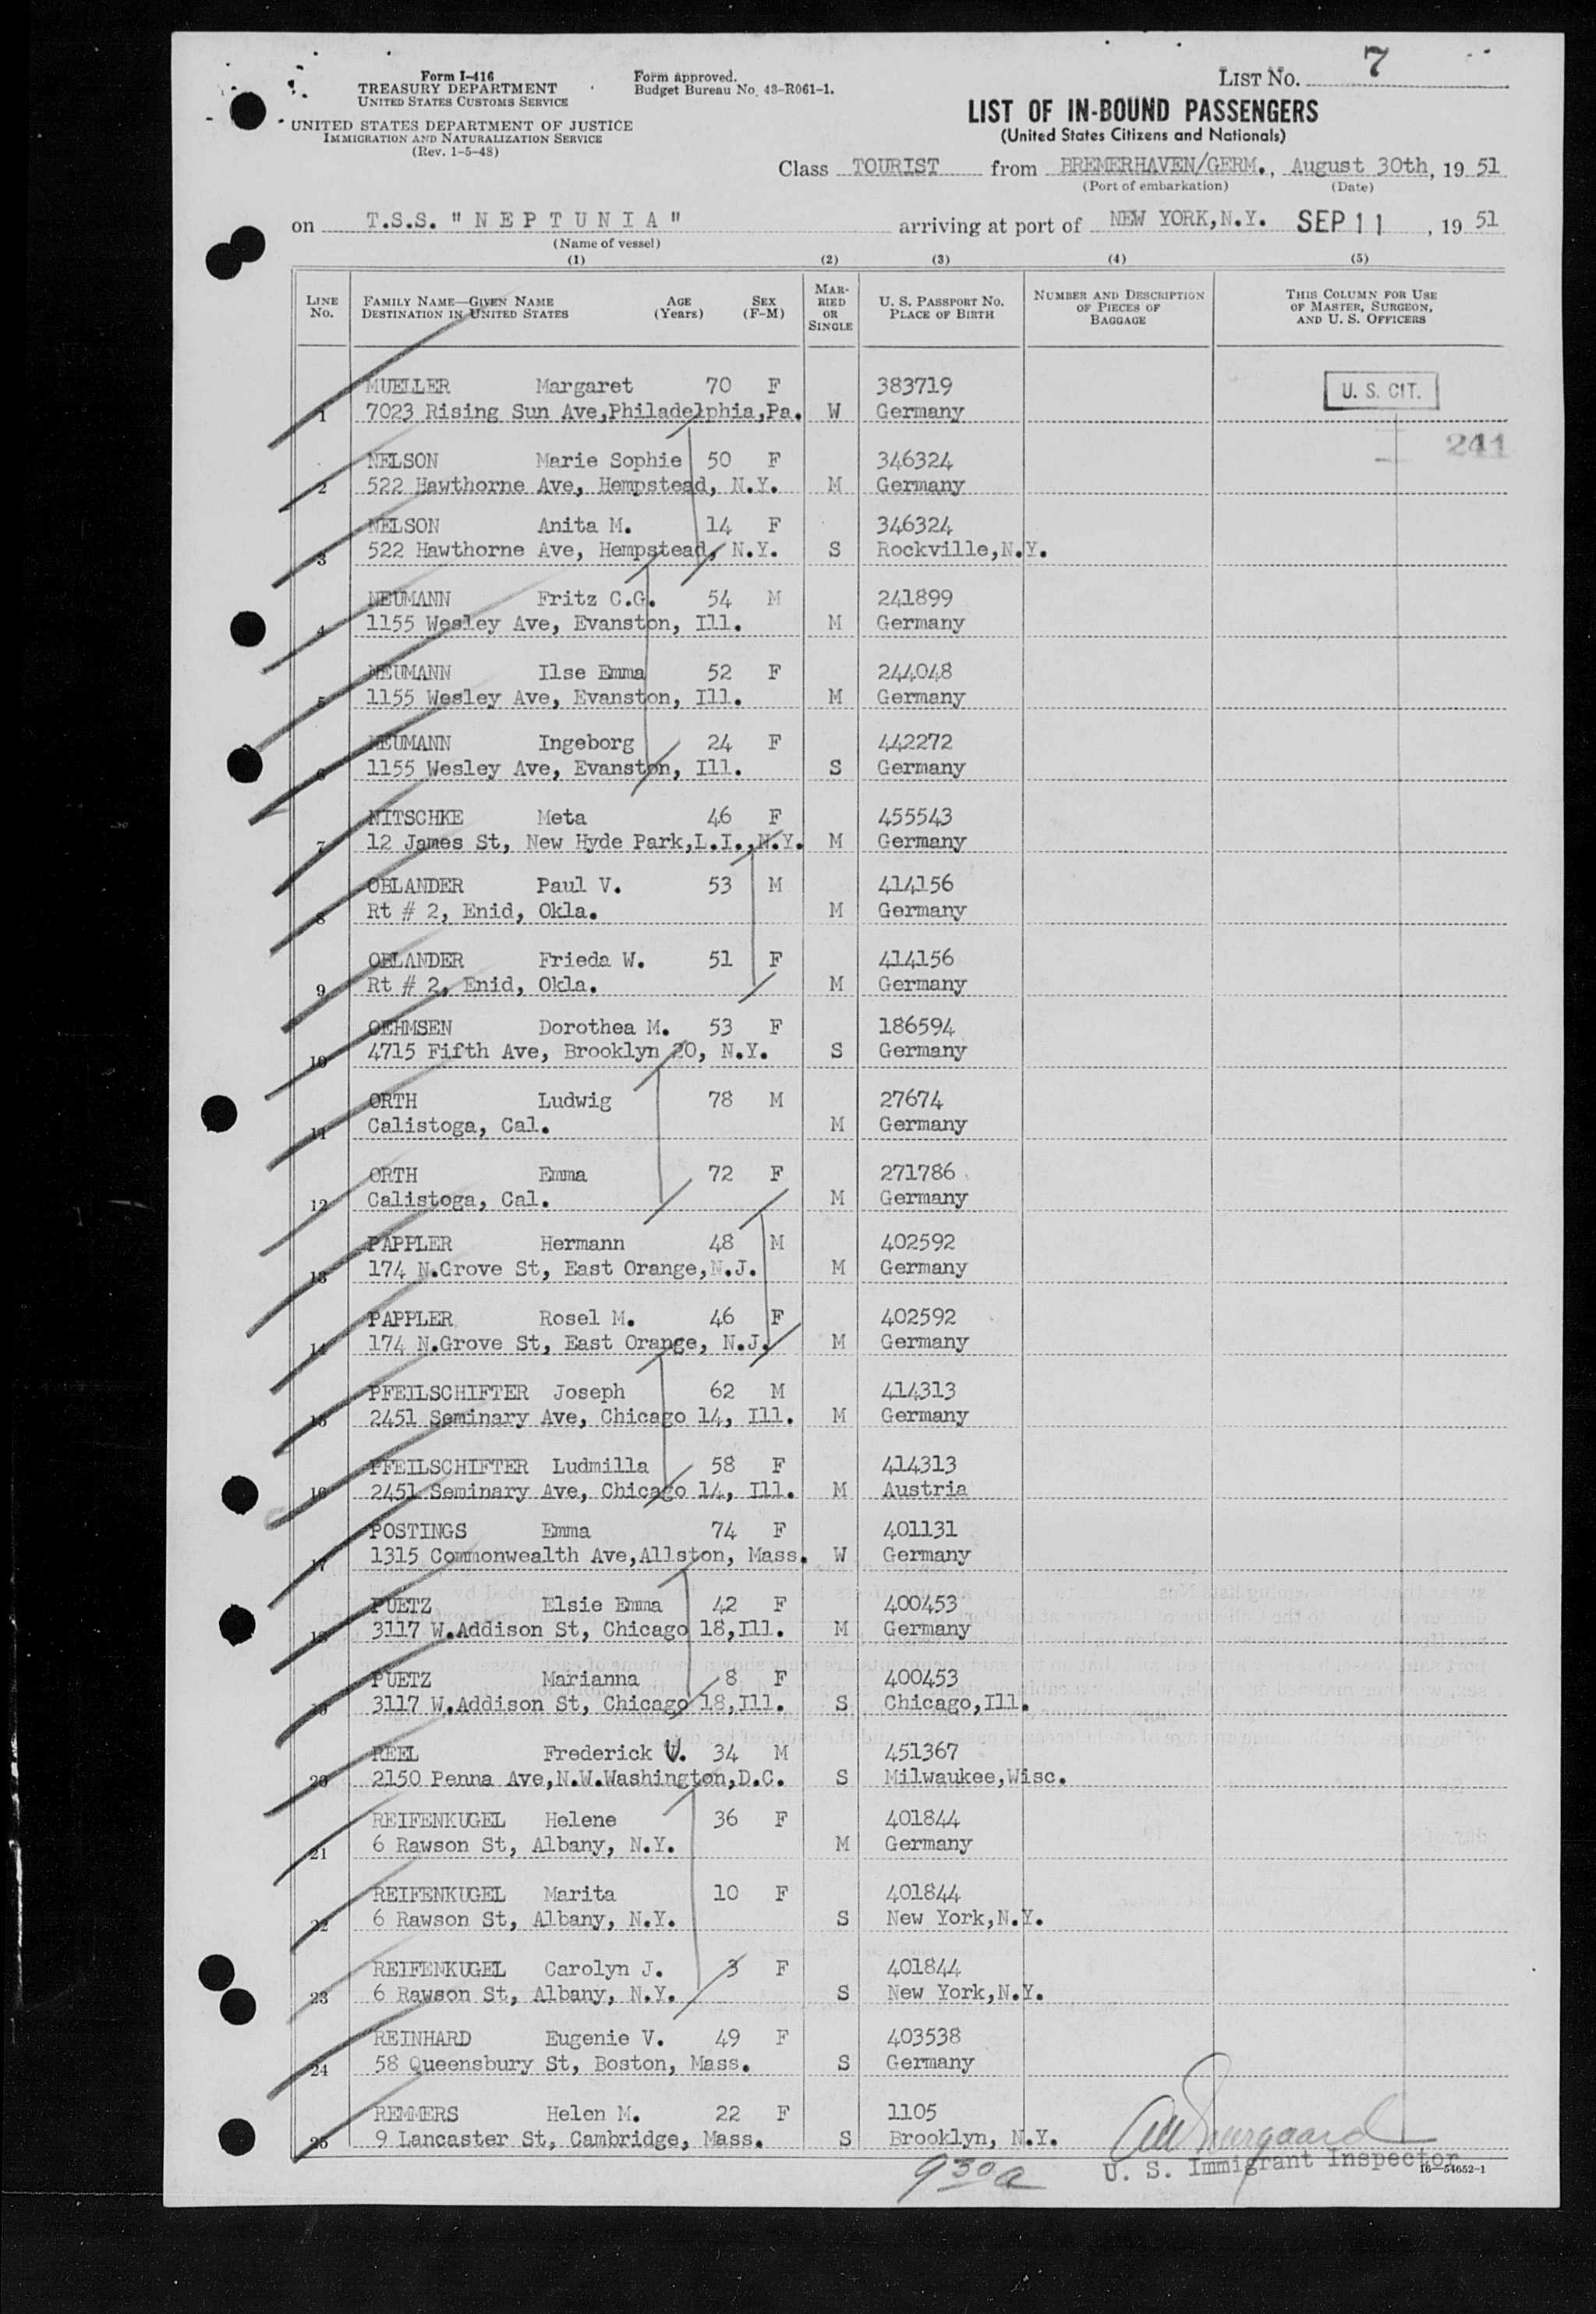 Form I-416
TREASURY DEPARTMENT
UNITED STATES CUSTOMS SERVICE
UNITED STATES DEPARTMENT OF JUSTICE
IMMIGRATION AND NATURALIZATION SERVICE
(Rev. 1-5-48)
Form approved.
Budget Bureau No. 43-R061-1.
LIST NO. 7
LIST OF IN-BOUND PASSENGERS
(United States Citizens and Nationals)
Class TOURIST from BREMERHAVEN/GERM., August 30th, 19 51
(Port of embarkation) (Date)
on T.S.S. "NEPTUNIA" arriving at port of NEW YORK,N.Y. SEP 11, 19 51
(Name of vessel)
(1) (2) (3) (4) (5)
LINE NO.
FAMILY NAME—GIVEN NAME AGE SEX
DESTINATION IN UNITED STATES (Years) (F-M)
MARRIED OR SINGLE
U. S. PASSPORT NO.
PLACE OF BIRTH
NUMBER AND DESCRIPTION OF PIECES OF BAGGAGE
THIS COLUMN FOR USE OF MASTER, SURGEON, AND U. S. OFFICERS
MUELLER Margaret 70 F 383719 U. S. CIT.
1 7023 Rising Sun Ave,Philadelphia,Pa. W Germany
241
NELSON Marie Sophie 50 F 346324
2 522 Hawthorne Ave, Hempstead, N.Y. M Germany
NELSON Anita M. 14 F 346324
3 522 Hawthorne Ave, Hempstead, N.Y. S Rockville,N.Y.
NEUMANN Fritz C.G. 54 M 241899
4 1155 Wesley Ave, Evanston, Ill. M Germany
NEUMANN Ilse Emma 52 F 244048
5 1155 Wesley Ave, Evanston, Ill. M Germany
NEUMANN Ingeborg 24 F 442272
6 1155 Wesley Ave, Evanston, Ill. S Germany
NITSCHKE Meta 46 F 455543
7 12 James St, New Hyde Park,L.I.,N.Y. M Germany
OBLANDER Paul V. 53 M 414156
8 Rt # 2, Enid, Okla. M Germany
OBLANDER Frieda W. 51 F 414156
9 Rt # 2, Enid, Okla. M Germany
OEHMSEN Dorothea M. 53 F 186594
10 4715 Fifth Ave, Brooklyn 20, N.Y. S Germany
ORTH Ludwig 78 M 27674
11 Calistoga, Cal. M Germany
ORTH Emma 72 F 271786
12 Calistoga, Cal. M Germany
PAPPLER Hermann 48 M 402592
13 174 N.Grove St, East Orange,N.J. M Germany
PAPPLER Rosel M. 46 F 402592
14 174 N.Grove St, East Orange, N.J. M Germany
PFEILSCHIFTER Joseph 62 M 414313
15 2451 Seminary Ave, Chicago 14, Ill. M Germany
PFEILSCHIFTER Ludmilla 58 F 414313
16 2451 Seminary Ave, Chicago 14, Ill. M Austria
POSTINGS Emma 74 F 401131
17 1315 Commonwealth Ave,Allston, Mass. W Germany
PUETZ Elsie Emma 42 F 400453
18 3117 W.Addison St, Chicago 18,Ill. M Germany
PUETZ Marianna 8 F 400453
19 3117 W.Addison St, Chicago 18,Ill. S Chicago,Ill.
REEL Frederick V. 34 M 451367
20 2150 Penna Ave,N.W.Washington,D.C. S Milwaukee,Wisc.
REIFENKUGEL Helene 36 F 401844
21 6 Rawson St, Albany, N.Y. M Germany
REIFENKUGEL Marita 10 F 401844
22 6 Rawson St, Albany, N.Y. S New York,N.Y.
REIFENKUGEL Carolyn J. 3 F 401844
23 6 Rawson St, Albany, N.Y. S New York,N.Y.
REINHARD Eugenie V. 49 F 403538
24 58 Queensbury St, Boston, Mass. S Germany
REMMERS Helen M. 22 F 1105
25 9 Lancaster St, Cambridge, Mass. S Brooklyn, N.Y.
930 a
U. S. Immigrant Inspector
16—54652-1